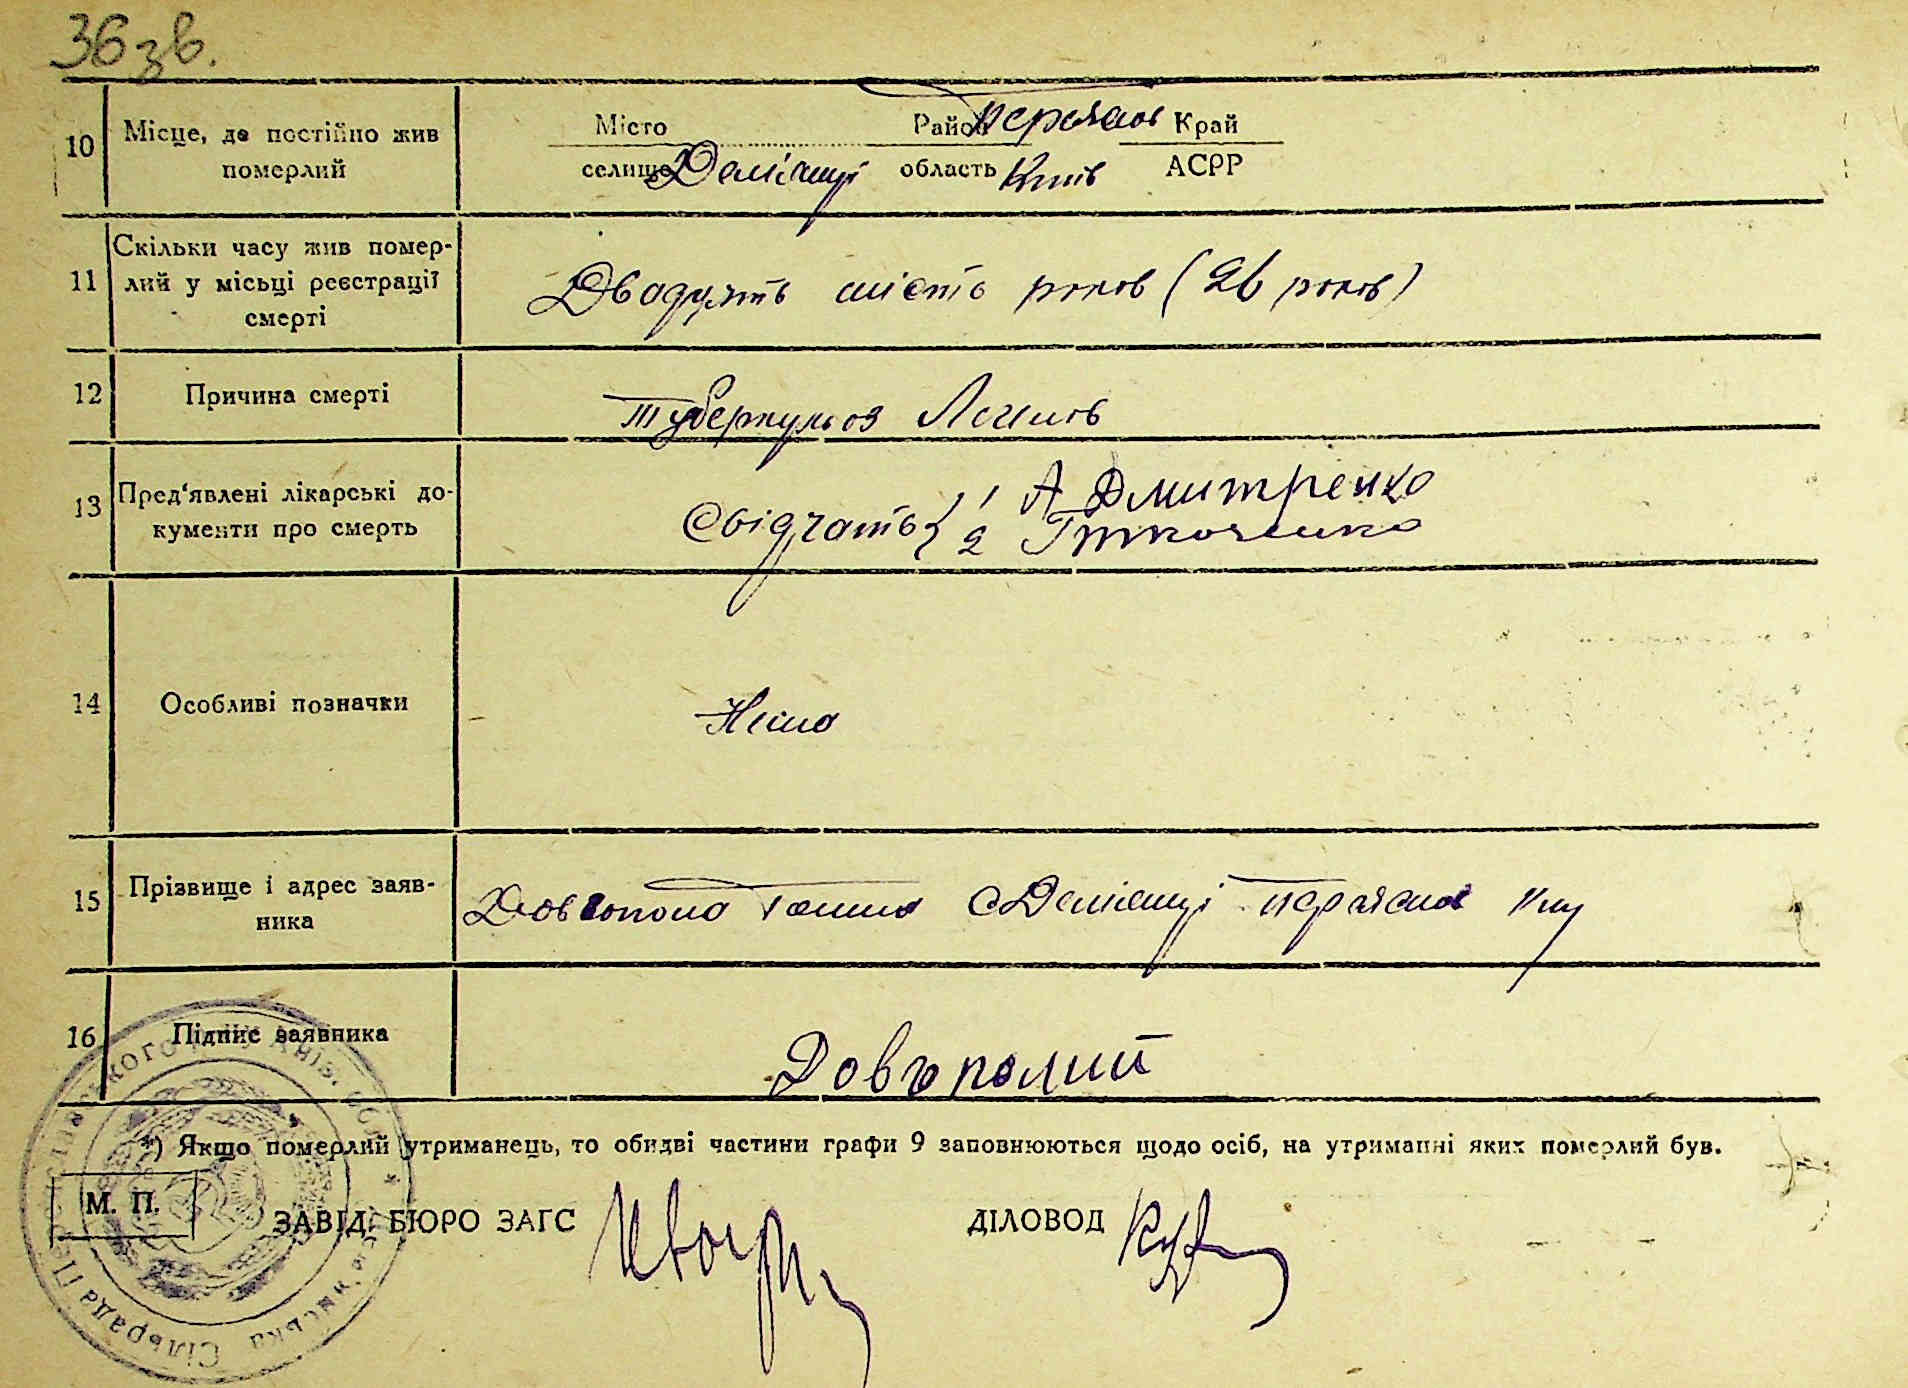 36 зв.
10 Місце, де постійно жив померлий Місто Район Переяслов Край
селище Демʼянці область Київ АСРР
11 Скільки часу жив помер-
лий у місьці реєстрації
смерті
Двадцять шість років (26 років)
12 Причина смерті Туберкульоз Легенів
13 Пред'явлені лікарські до-
кументи про смерть
Свідчать { 1 А Дмитренко
2 Г Ткаченко
14 Особливі позначки Нема
15 Прізвище і адрес заяв-
ника
Довгопола Ганна с Демʼянці Переяслов
16 Підпис заявника Довгополий
*) Якщо померлий утриманець, то обидві частини графи 9 заповнюються щодо осіб, на утриманні яких померлий був.
М. П.
ЗАВІД. БЮРО ЗАГС ДІЛОВОД
Сільрада